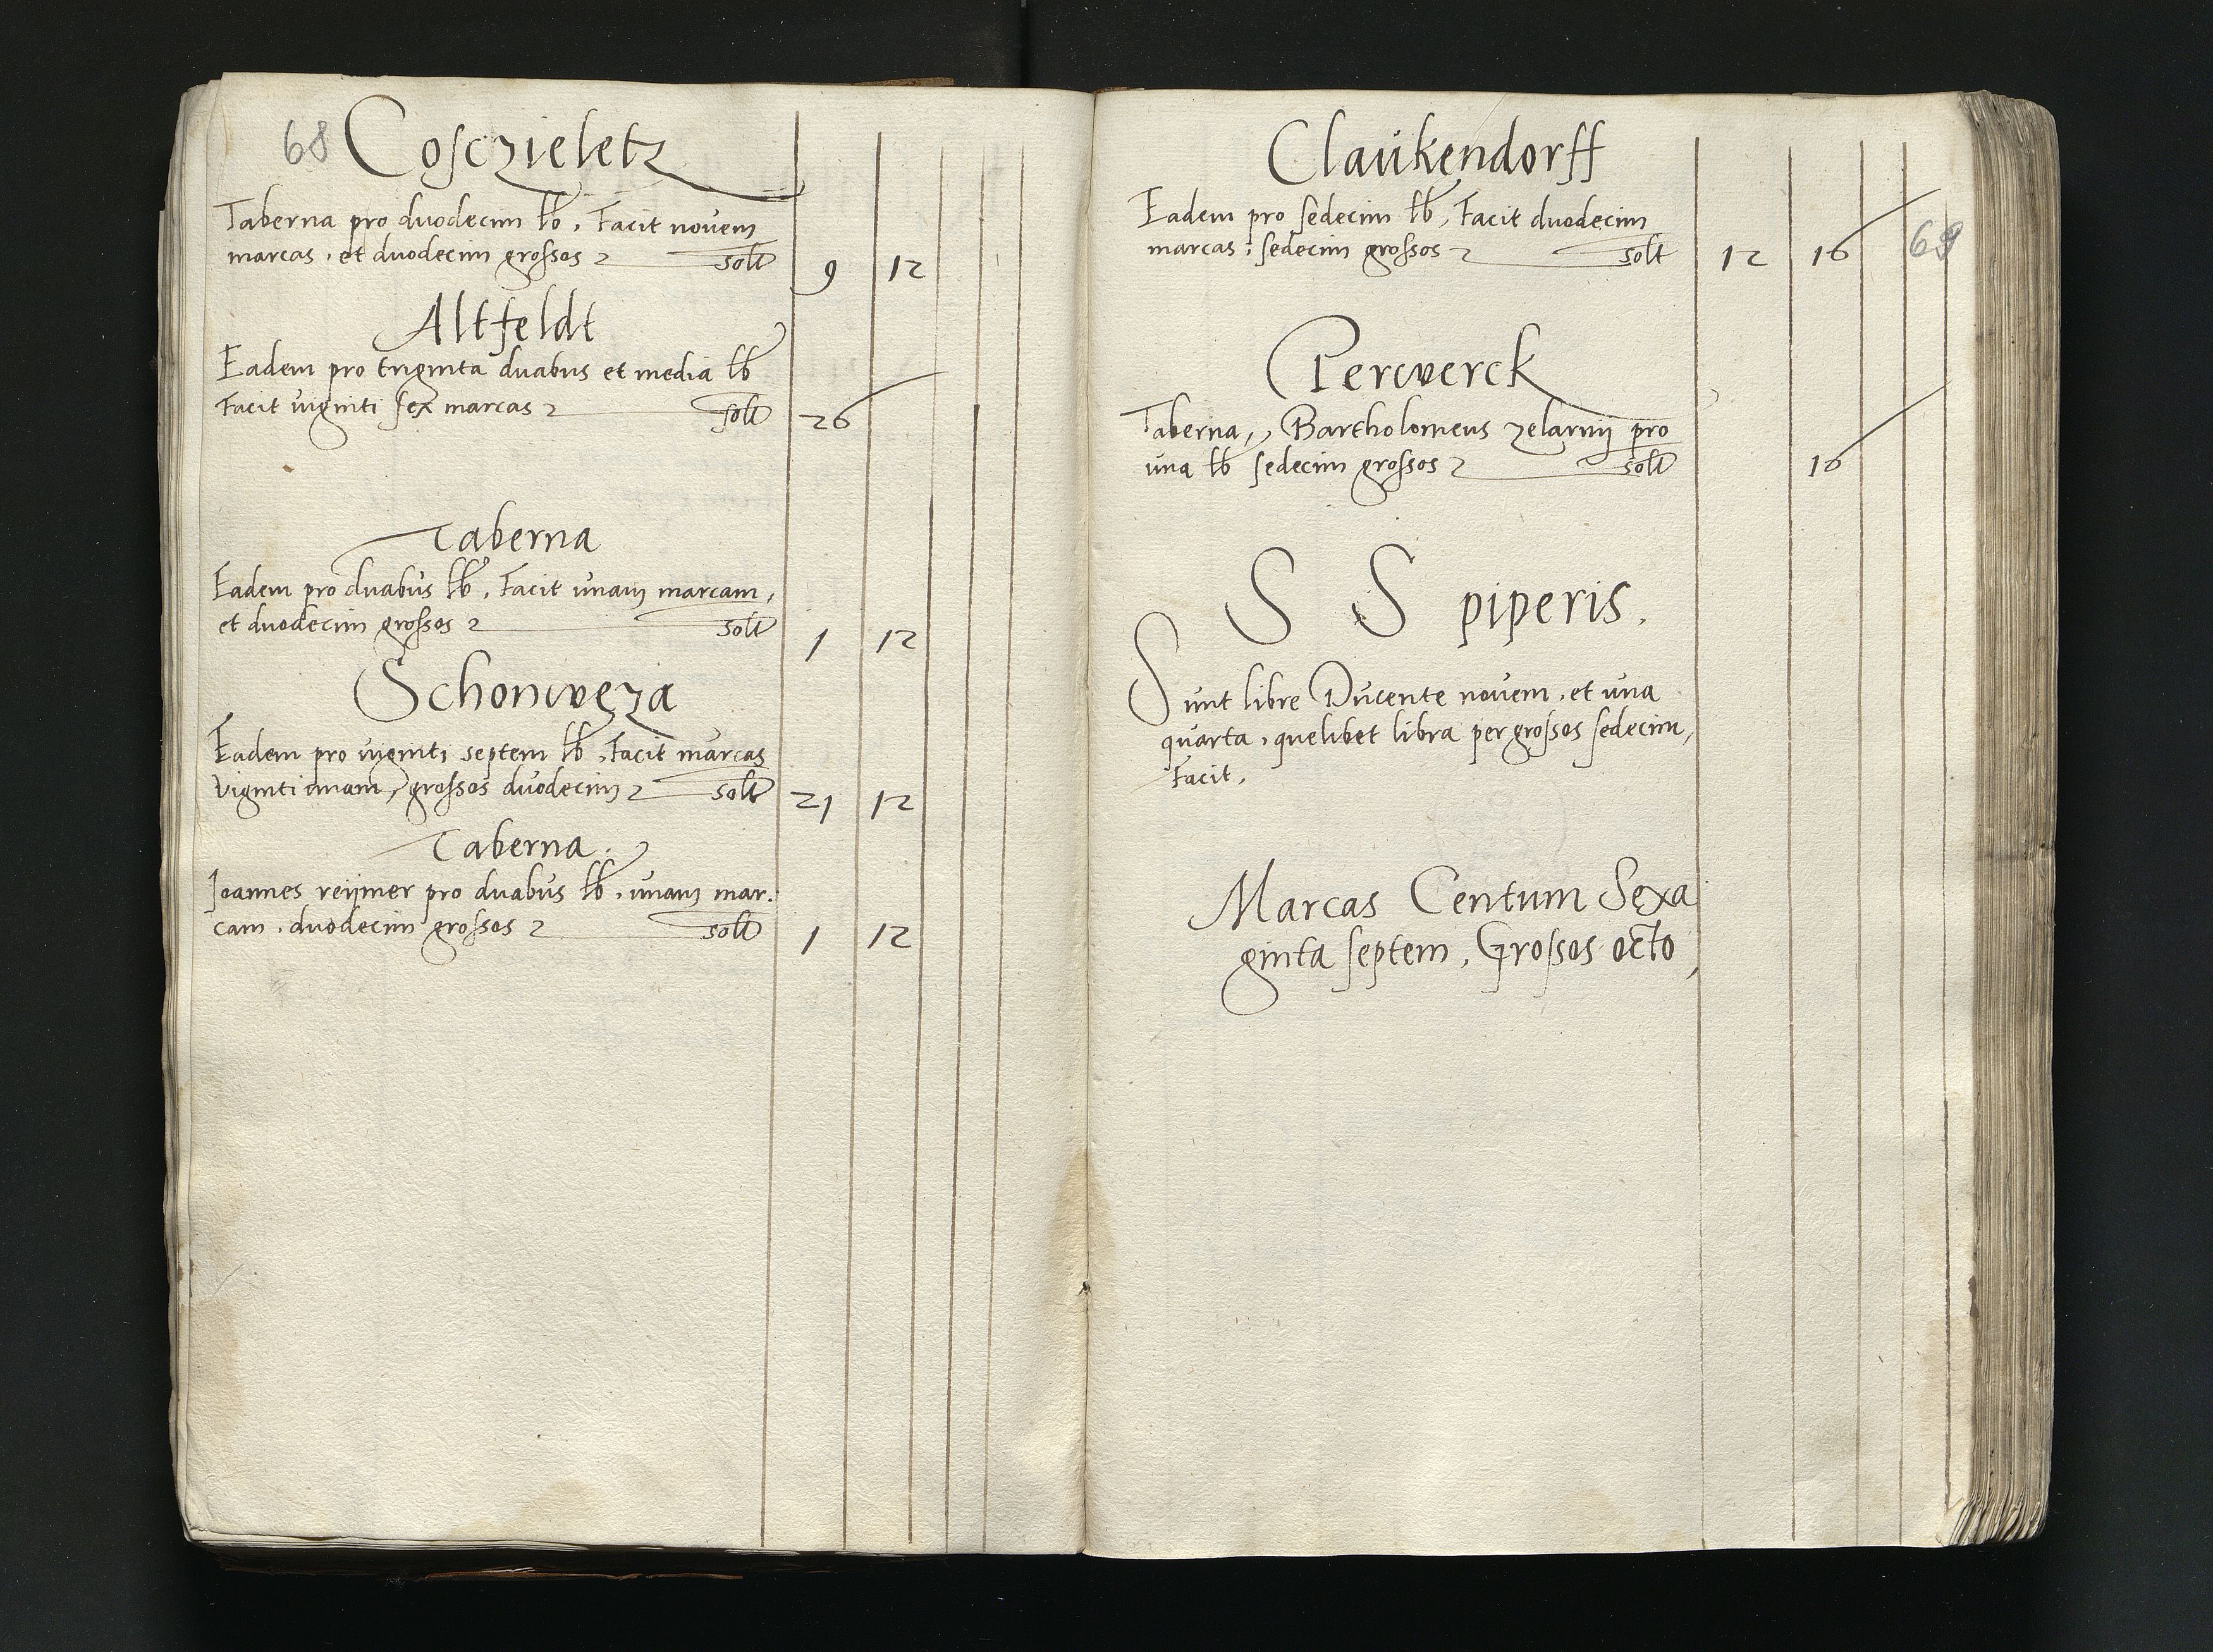 68 Cosczieletz
Taberna pro duodecim lb, Facit novem
marcas, et duodecim grossos solt 9 12
Altfeldt
Eadem pro triginta duabus et media lb
Facit viginti sex marcas solt 26
Taberna
Eadem pro duabus lb, Facit unam marcam,
et duodecim grossos solt 1 12
Schonweza
Eadem pro viginti septem lb, Facit marcas
viginti unam, grossos duodecim solt 21 12
Taberna.
Joannes reijmer pro duabus lb, unam mar.
cam, duodecim grossos solt 1 12
Claukendorff
Eadem pro sedecim lb, Facit duodecim
marcas, sedecim grossos solt 12 16
69
Percwerck
Taberna, Bartholomeus zelarnij pro
una lb sedecim grossos solt 16
S S piperis.
Sunt libre Ducente novem, et una
quarta, quelibet libra per grossos sedecim,
Facit,
Marcas Centum Sexa
ginta septem, Grossos octo,